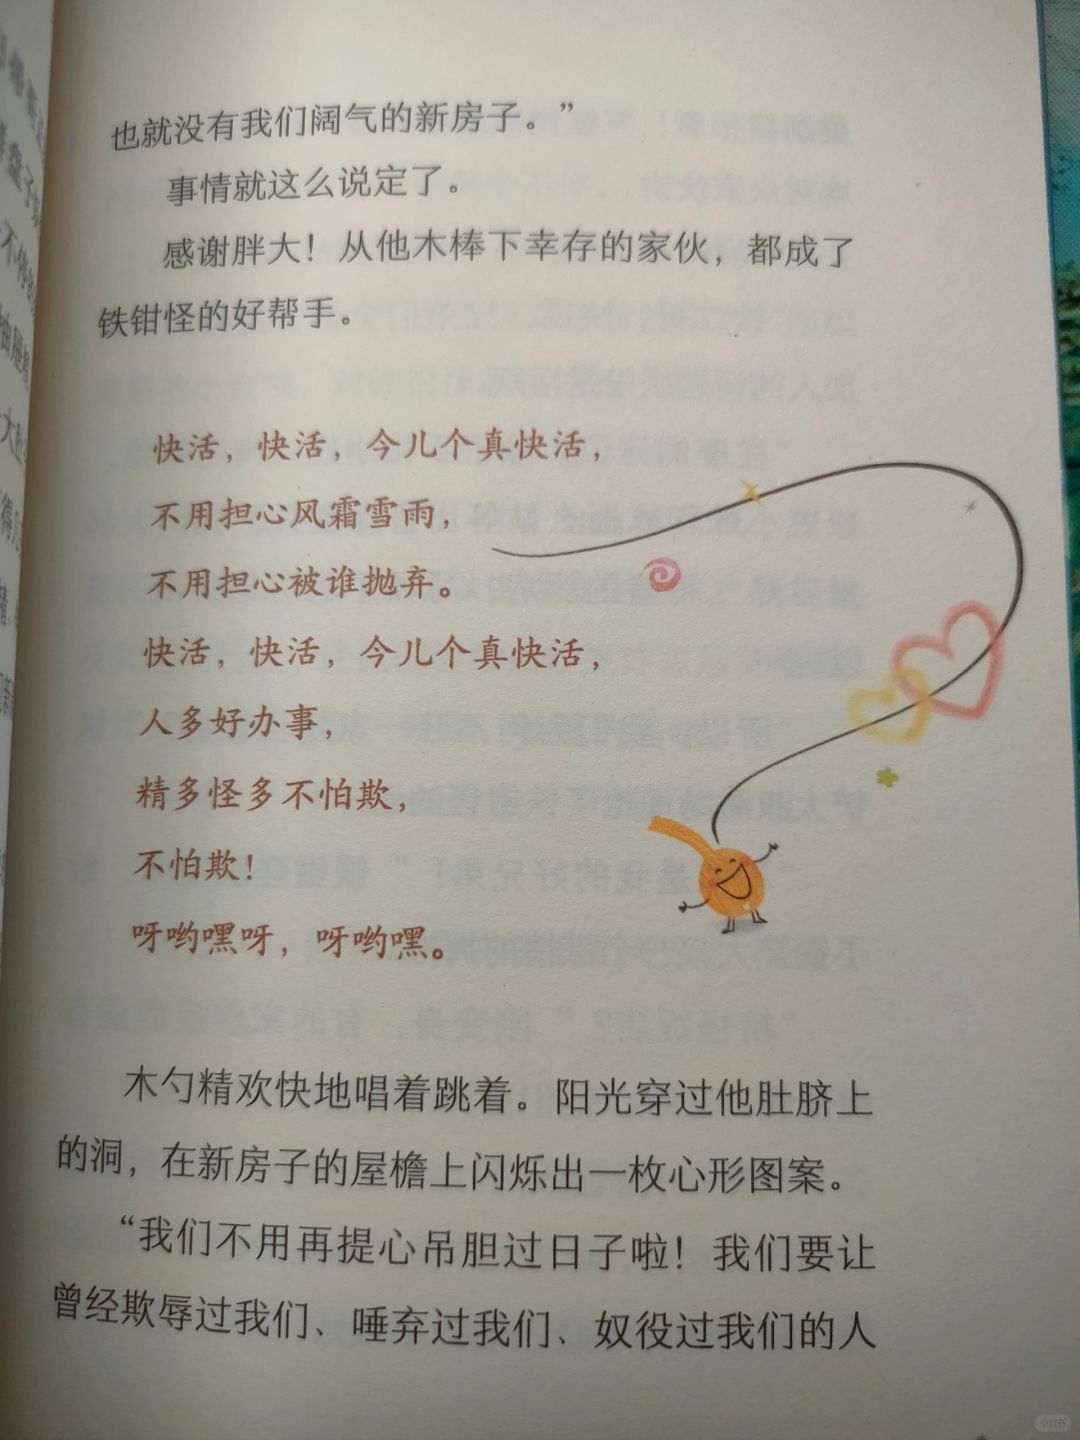 也就没有我们阔气的新房子。”
事情就这么说定了。
感谢胖大！从他木棒下幸存的家伙，都成了
铁钳怪的好帮手。
快活，快活，今儿个真快活，
不用担心风霜雪雨，
不用担心被谁抛弃。
快活，快活，今儿个真快活，
人多好办事，
精多怪多不怕欺，
不怕欺！
呀哟嘿呀，呀哟嘿。
木勺精欢快地唱着跳着。阳光穿过他肚脐上
的洞，在新房子的屋檐上闪烁出一枚心形图案。
“我们不用再提心吊胆过日子啦！我们要让
曾经欺辱过我们、唾弃过我们、奴役过我们的人
小红书